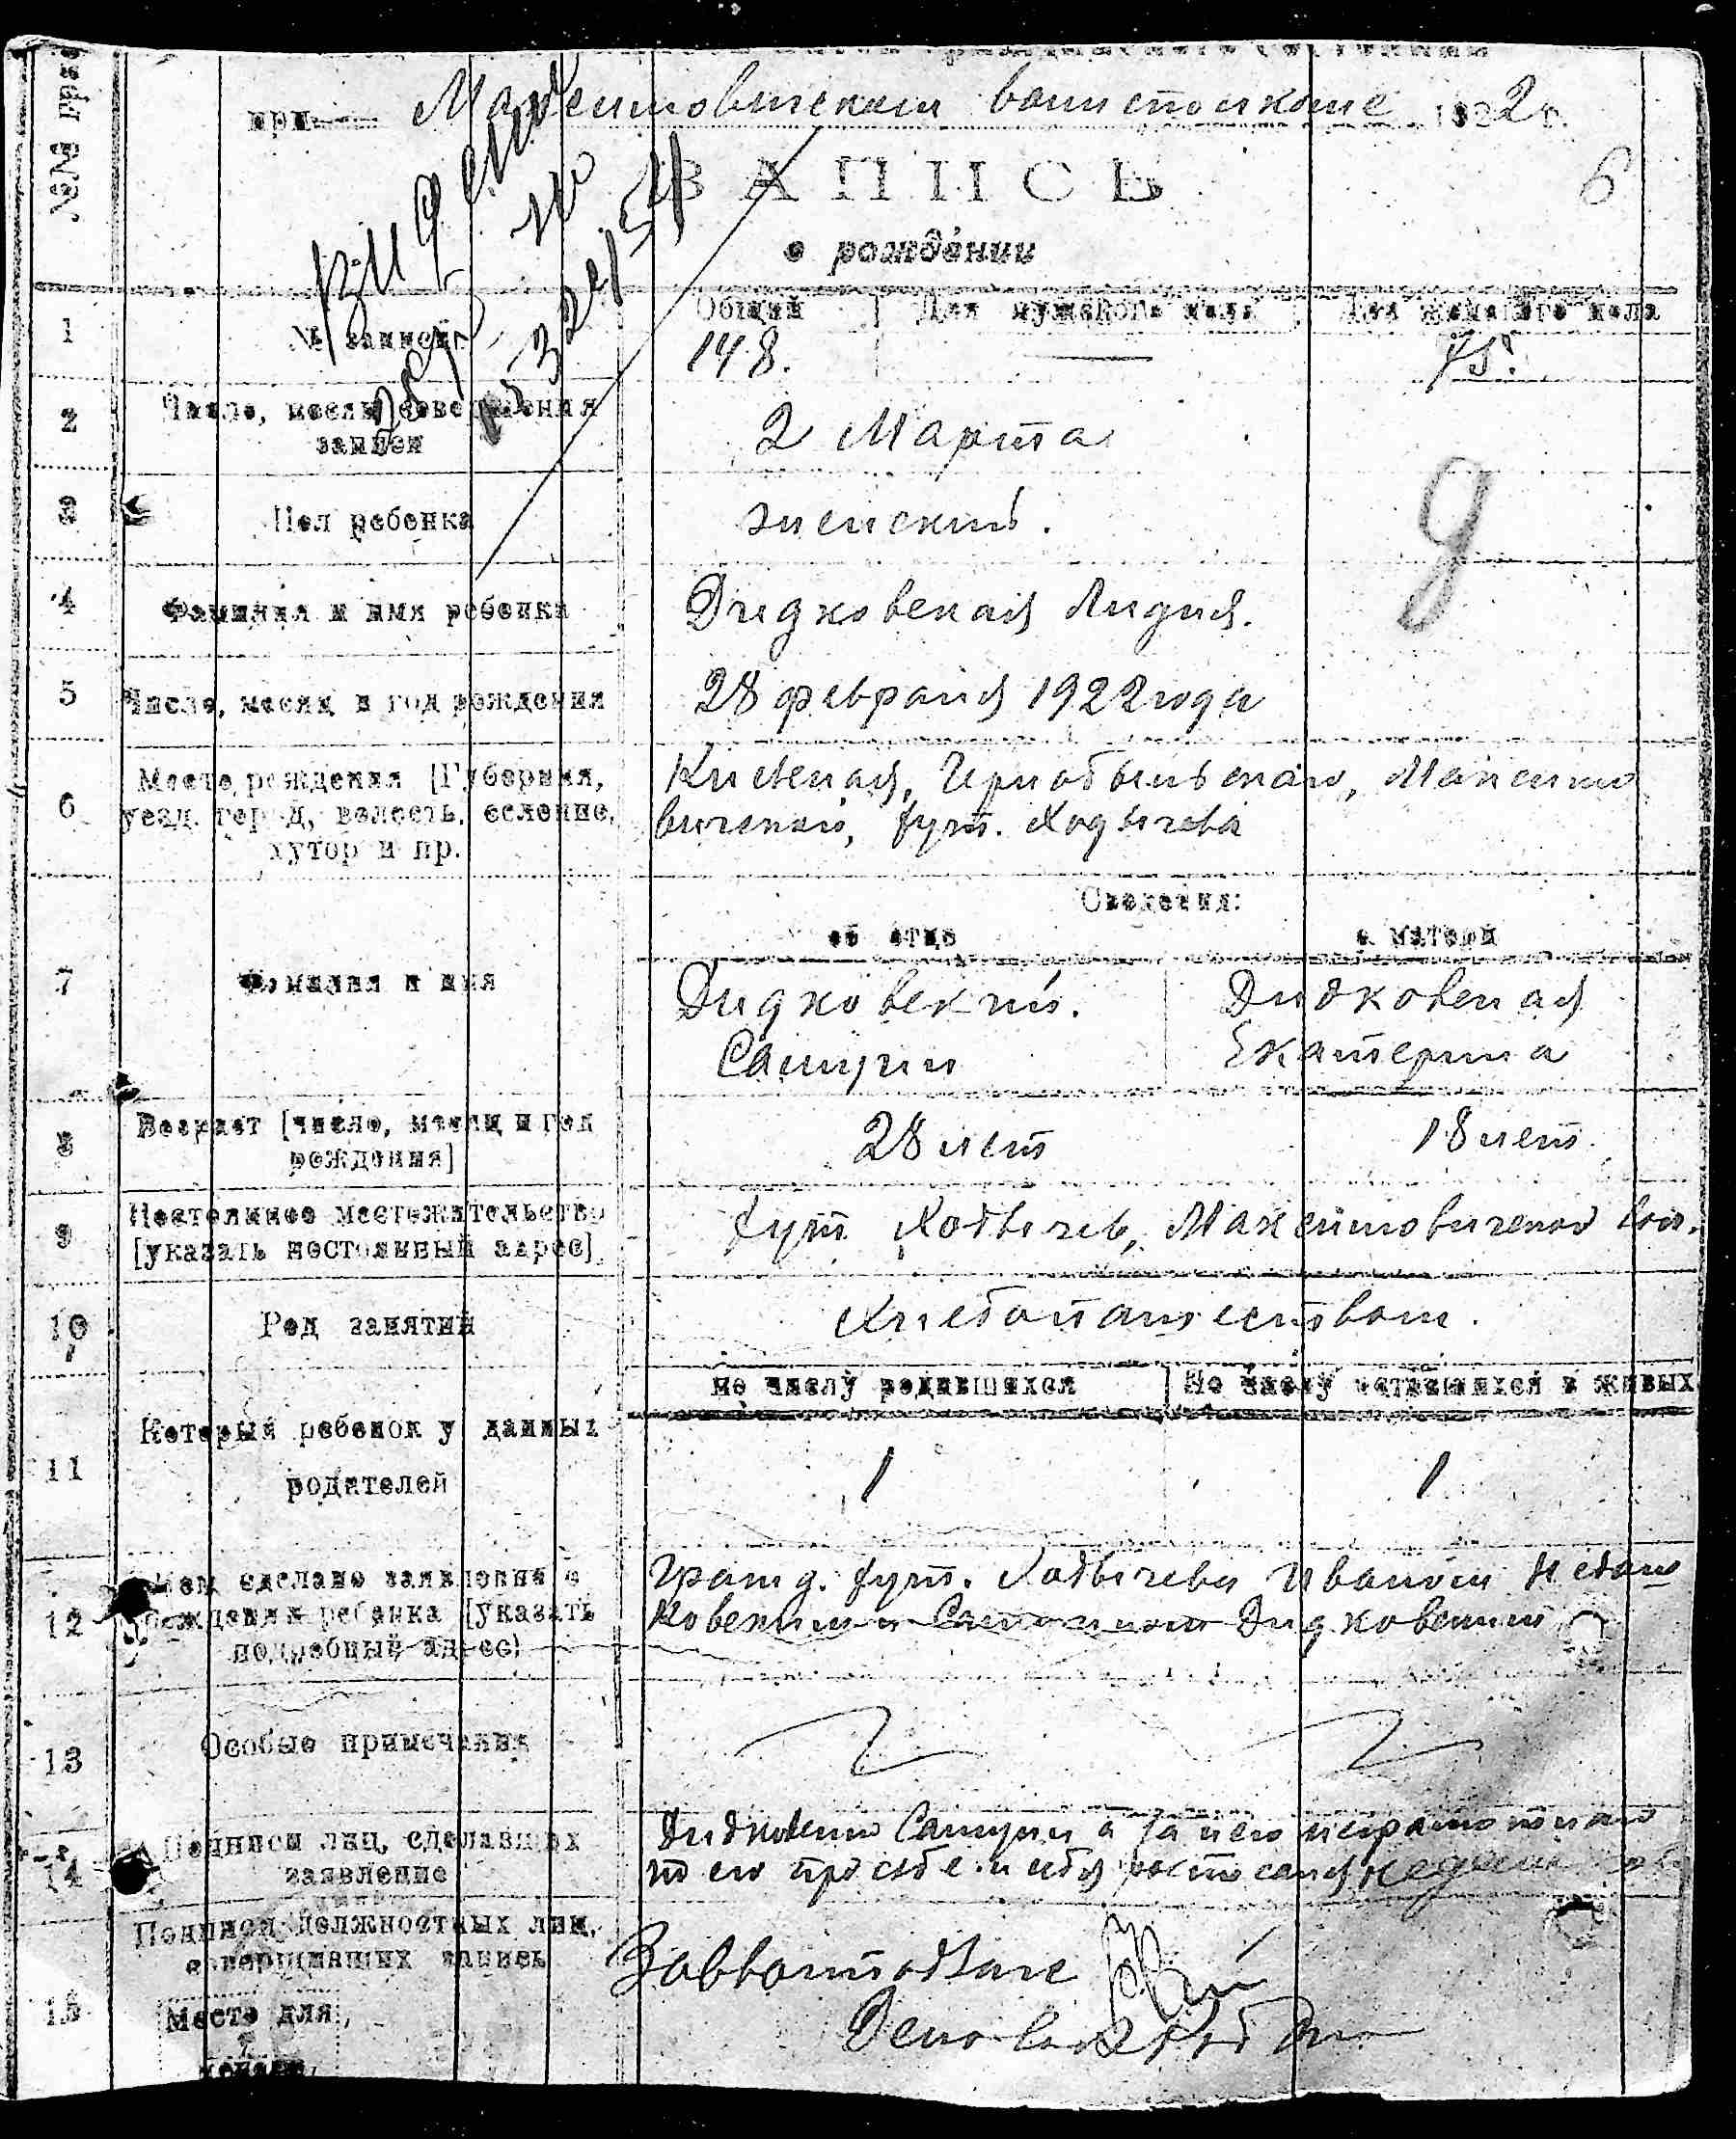 №№ гра
при Максимовическом волисполкоме 1922 г.
ЗАПИСЬ
6
о рождении
Общий | Для мужского пола | Для женского пола
1
№ записи
148. — 75.
2
Число, месяц совершения
записи
2 Марта
3
Пол ребенка
женский.
4
Фамилия и имя ребенка
Дидковская Лидия.
5
Число, месяц и год рождения
28 февраля 1922 года
6
Место рождения [Губерния,
уезд, город, волость, селение,
хутор и пр.
Киевская, Чернобыльская, Максимо
вическая, хут.
Сведения:
об отце
о матери
7
Фамилия и имя
Дидковский.
Самуил
Дидковская
Екатерина
8
Возраст [число, месяц и год
рождения]
28 лет
18 лет.
9
Постоянное местожительство
[указать постоянный адрес]
хут Максимовической вол.
10
Род занятий
Хлебопашеством.
По числу родившихся | По числу оставшихся в живых
11
Который ребенок у данных
родителей
1
1
12
Кем сделано заявление о
рождении ребенка [указать
подробный адрес)
Гражд. хут. Иваном
Дидковским
13
Особые примечания
14
Подписи лиц, сделавших
заявление
Самуил а за него неграмотного
по его просьбе и себя росписался
15
Подписи должностных лиц,
совершивших запись
Место для
печати.
Завподотзагс